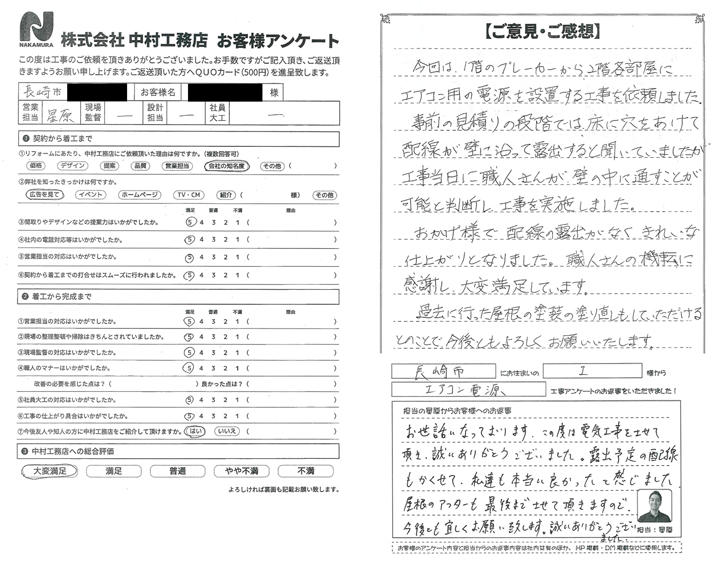 NAKAMURA
株式会社 中村工務店 お客様アンケート
この度は工事のご依頼を頂きありがとうございました。お手数ですがご記入頂き、ご返送頂
きますようお願い申し上げます。ご返送頂いた方へQUOカード(500円)を進呈致します。
長崎市 お客様名 様
営業担当 星原 現場監督 ー 設計担当 ー 社員大工 ー
❶ 契約から着工まで
①リフォームにあたり、中村工務店にご依頼頂いた理由は何ですか。(複数回答可)
価格 デザイン 提案 品質 営業担当 会社の知名度 その他 ( )
②弊社を知ったきっかけは何ですか。
広告を見て イベント ホームページ TV・CM 紹介 ( 様) その他
満足 普通 不満 理由
③間取りやデザインなどの提案力はいかがでしたか。 5 4 3 2 1 ( )
④社内の電話対応等はいかがでしたか。 5 4 3 2 1 ( )
⑤営業担当の対応はいかがでしたか。 5 4 3 2 1 ( )
⑥契約から着工までの打合せはスムーズに行われましたか。 5 4 3 2 1 ( )
❷ 着工から完成まで
満足 普通 不満 理由
①営業担当の対応はいかがでしたか。 5 4 3 2 1 ( )
②現場の整理整頓や掃除はきちんとされていましたか。 5 4 3 2 1 ( )
③現場監督の対応はいかがでしたか。 5 4 3 2 1 ( )
④職人のマナーはいかがでしたか。 5 4 3 2 1 ( )
改善の必要を感じた点は?( )良かった点は?( )
⑤社員大工の対応はいかがでしたか。 5 4 3 2 1 ( )
⑥工事の仕上がり具合はいかがでしたか。 5 4 3 2 1 ( )
⑦今後友人や知人の方に中村工務店をご紹介して頂けますか。 はい いいえ ( )
❸ 中村工務店への総合評価
大変満足 満足 普通 やや不満 不満
よろしければ裏面も記載お願い致します。
【ご意見・ご感想】
今回は、1階のブレーカーから2階各部屋に
エアコン用の電源を設置する工事を依頼しました。
事前の見積りの段階では、床に穴をあけて
配線が壁に沿って露出すると聞いていましたが
工事当日に職人さんが壁の中に通すことが
可能と判断し工事を実施しました。
おかげ様で配線の露出がなく、きれいな
仕上がりとなりました。職人さんの機転に
感謝し、大変満足しています。
過去に行った屋根の塗装の塗り直しもしていただける
とのことで今後ともよろしくお願いいたします。
長崎市 にお住まいの I 様から
エアコン電源 工事アンケートのお返事をいただきました!
担当の星原からお客様へのお返事
お世話になっております。この度は電気工事をさせて
頂き、誠にありがとうございました。露出予定の配線
もかくせて、私達も本当に良かったと感じました
屋根のアフターも最後までさせて頂きますので、
今後とも宜しくお願い致します。誠にありがとうござい
ました。
担当:星原
お客様のアンケート内容と担当からのお返事内容は社内共有のほか、HP掲載・DM掲載などに使用します。